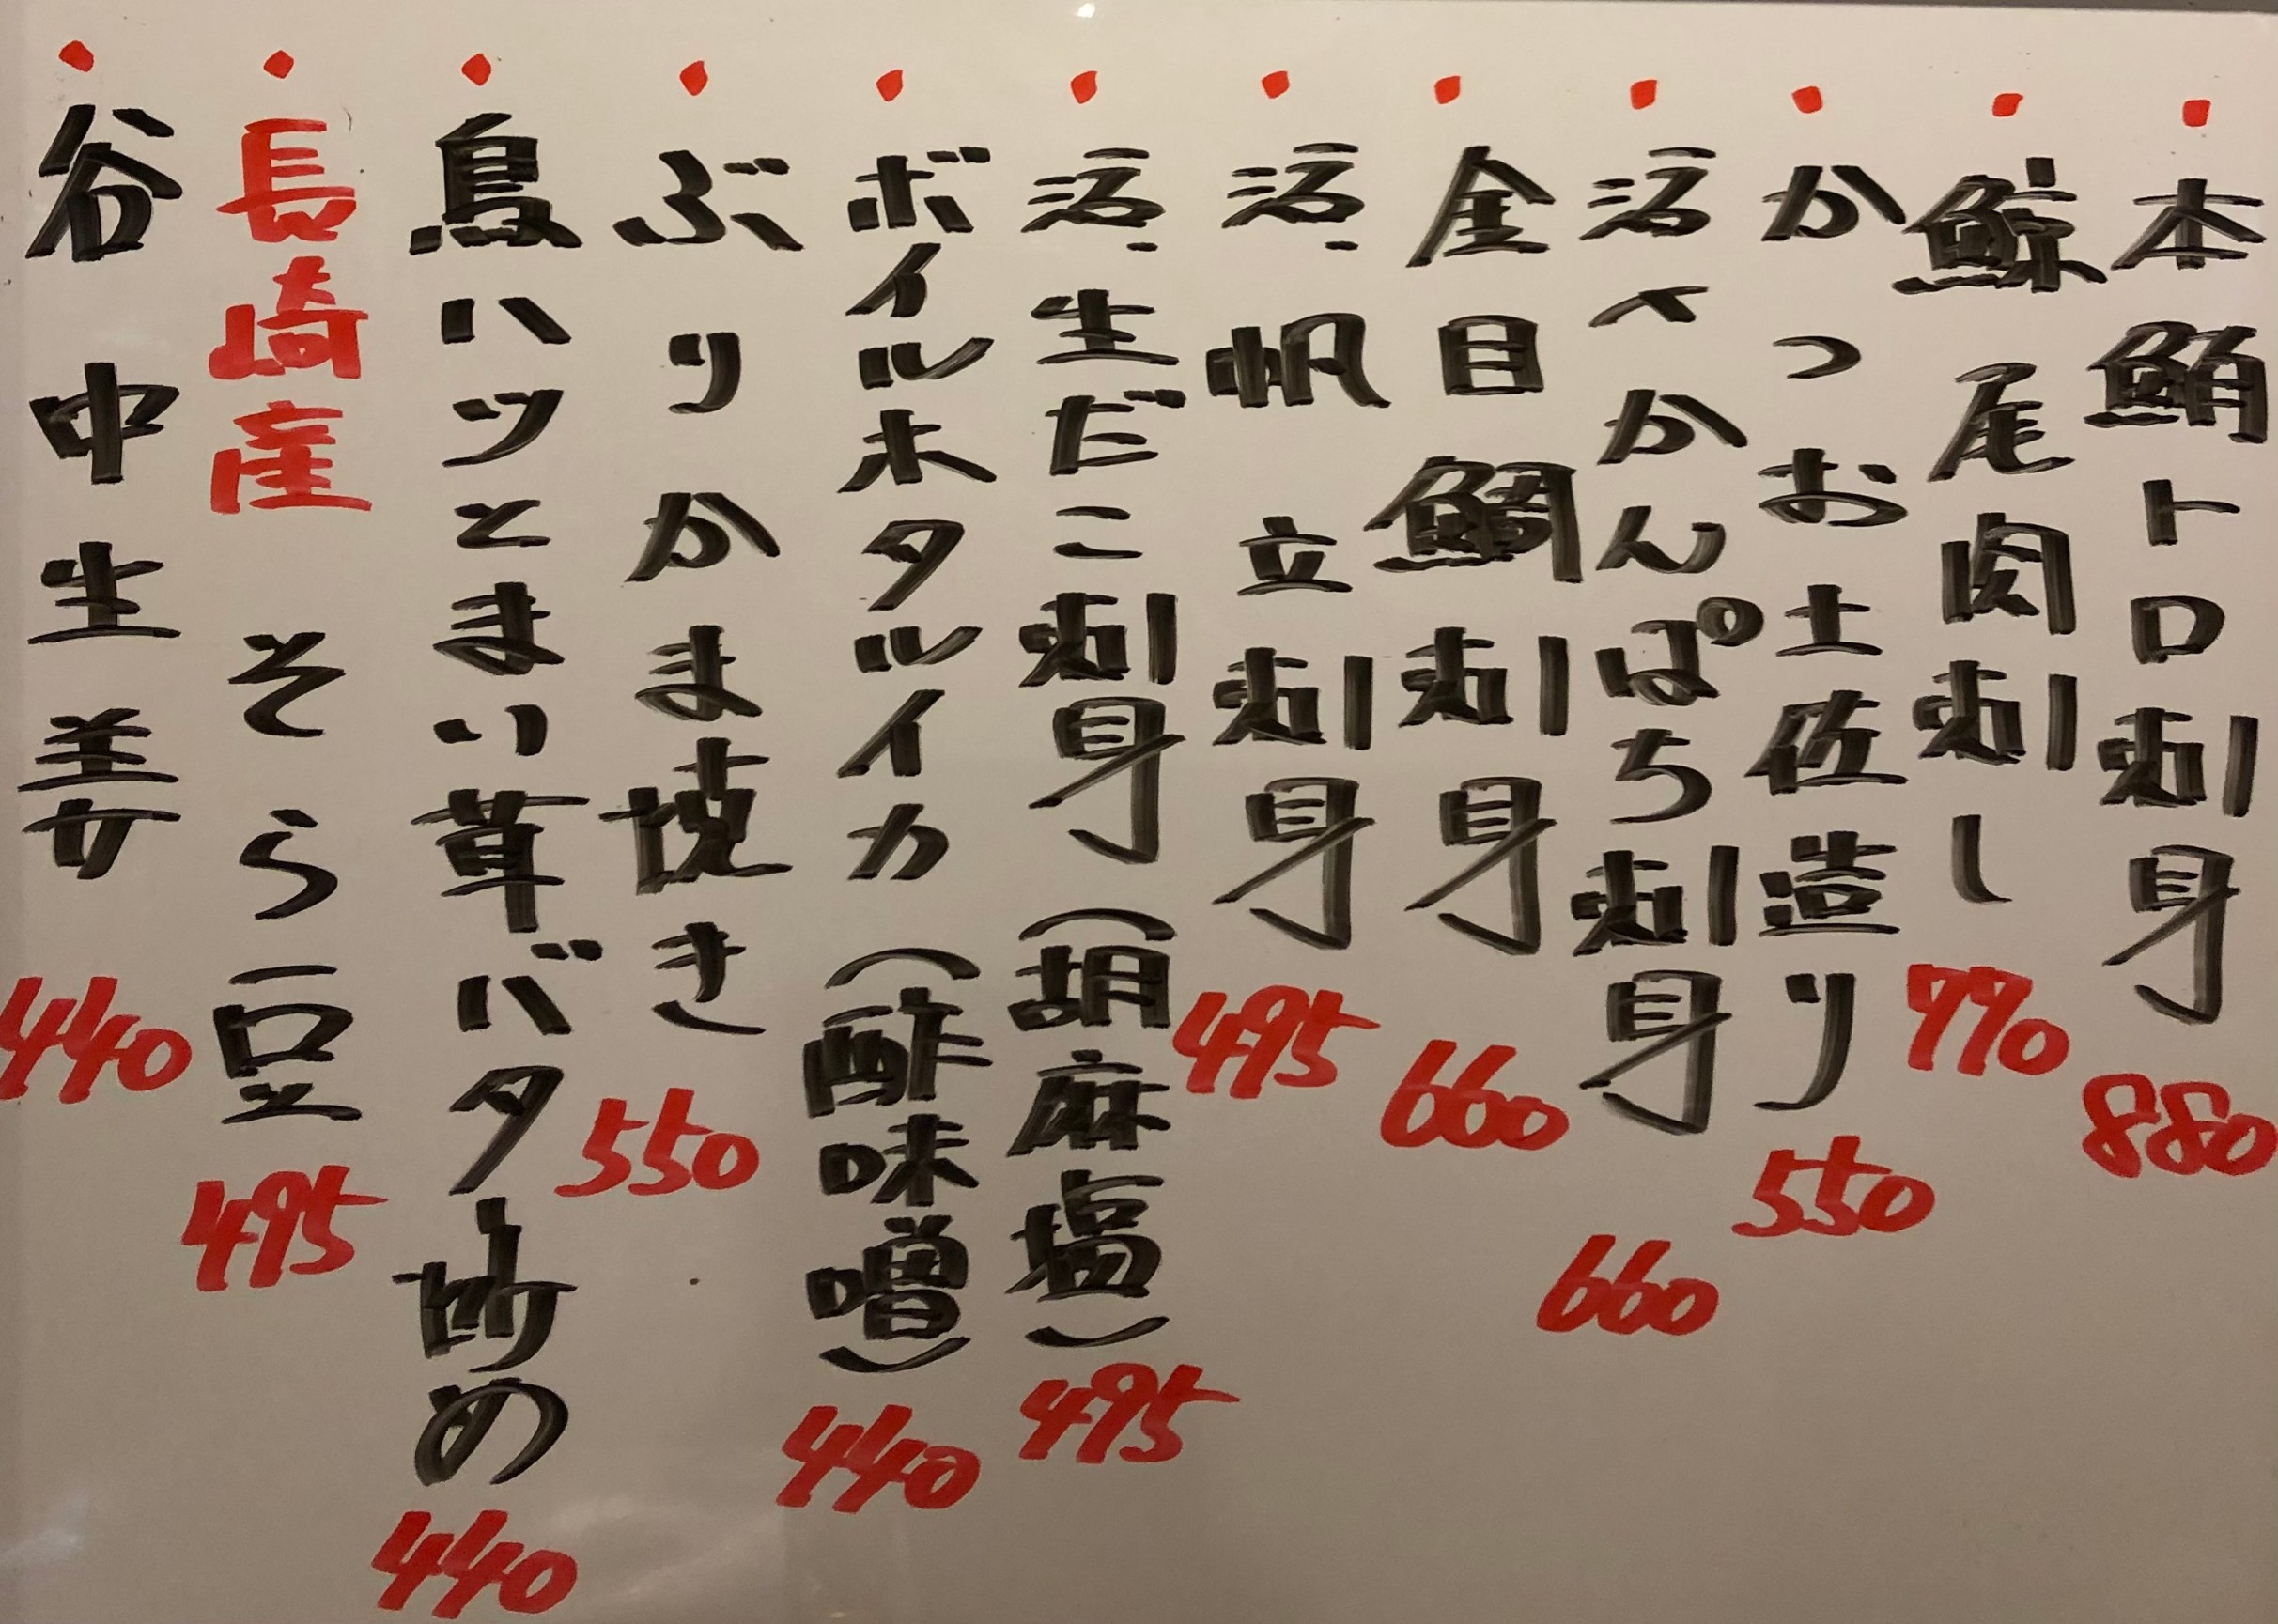 ・本鮪トロ刺身 880
・鯨尾肉刺し 770
・かつお土佐造り 550
・活〆かんぱち刺身 660
・金目鯛刺身 660
・活帆立刺身 495
・活生だこ刺身（胡麻塩） 495
・ボイルホタルイカ（酢味噌） 440
・ぶりかま焼き 550
・鳥ハツとまい茸バタ炒め 440
・長崎産そら豆 495
・谷中生姜 440